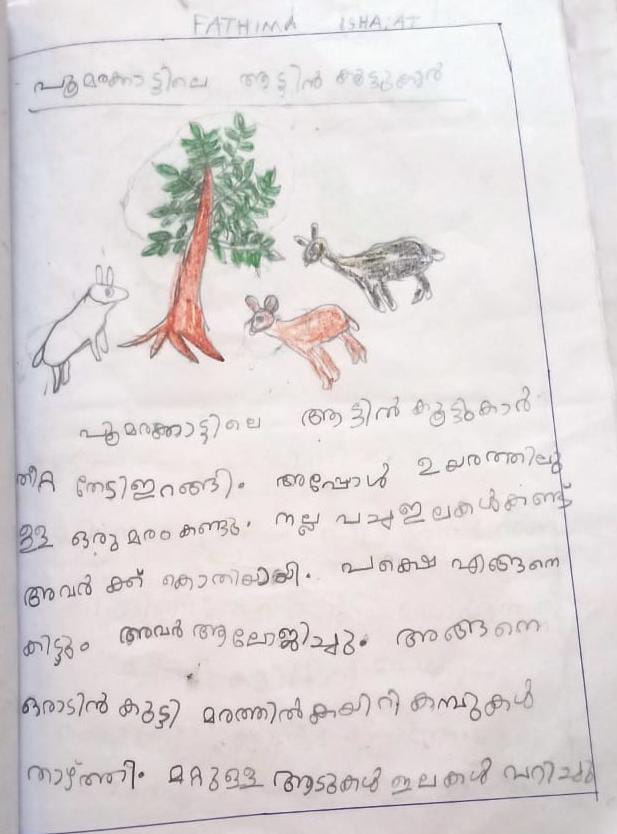 FATHIMA ISHAJAT
പൂമരക്കാട്ടിലെ ആട്ടിൻ കൂട്ടുകാർ
പൂമരക്കാട്ടിലെ ആട്ടിൻ കൂട്ടുകാർ
തീറ്റ തേടിഇറങ്ങി. അപ്പോൾ ഉയരത്തിലു
ള്ള ഒരു മരം കണ്ടു. നല്ല പച്ച ഇലകൾകണ്ട്
അവർ ക്ക് കൊതിയായി. പക്ഷെ എങ്ങനെ
കിട്ടും അവർ ആലോജിച്ചു. അങ്ങനെ
ഒരാടിൻ കുട്ടി മരത്തിൽ കയറി കമ്പുകൾ
താഴ്ത്തി. മറ്റുള്ള ആടുകൾ ഇലകൾ പറിച്ചു